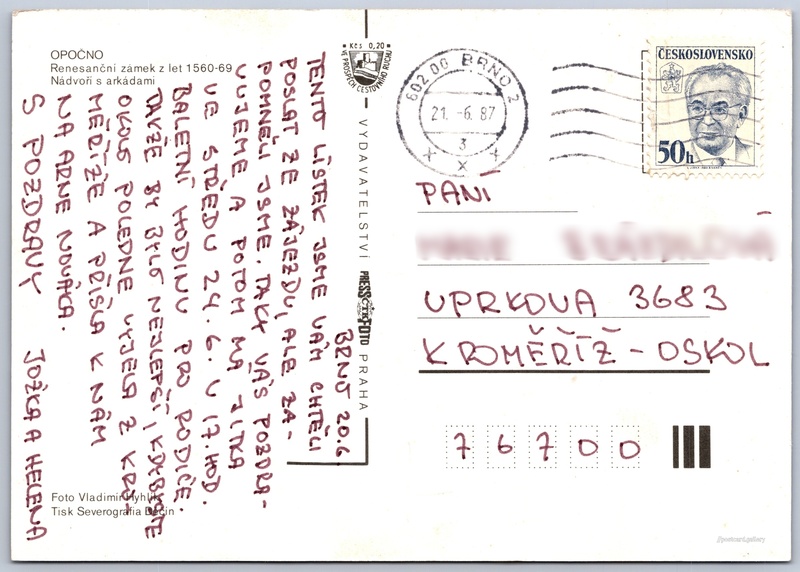 OPOČNO
Renesanční zámek z let 1560-69
Nádvoří s arkádami
BRNO 20.6.
TENTO LÍSTEK JSME VÁM CHTĚLI
POSLAT ZE ZÁJEZDU, ALE ZA-
POMNĚLI JSME. TAKY VÁS POZDRA-
VUJEME A POTOM MÁ JITKA
VE STŘEDU 24.6. V 17. HOD.
BALETNÍ HODINU PRO RODIČE.
TAKŽE BY BYLO NEJLEPŠÍ, KDYBYSTE
OKOLO POLEDNE VYJELA Z KRO-
MĚŘÍŽE A PŘIŠLA K NÁM
NA ARNE NOVÁKA.
S POZDRAVY JOŽKA A HELENA
Foto Vladimír Hyhlík
Tisk Severografia Děčín
Kčs 0,20
VE PROSPĚCH CESTOVNÍHO RUCHU
VYDAVATELSTVÍ PRESSFOTO PRAHA
ČTK
602 00 BRNO 2
21. -6. 87
3
ČESKOSLOVENSKO
50h
PANÍ
ÚPRKOVA 3683
KROMĚŘÍŽ - OSKOL
76700
//postcard.gallery